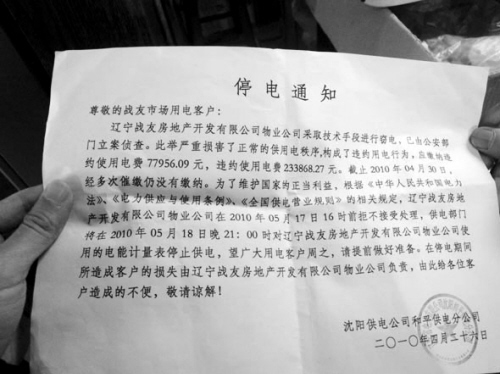 停电通知
尊敬的战友市场用电客户：
辽宁战友房地产开发有限公司物业公司采取技术手段进行窃电，已由公安部
门立案侦查。此举严重损害了正常的供用电秩序，构成了违约用电行为，应缴纳违
约使用电费 77956.09 元，违约使用电费 233868.27 元。截止 2010 年 04 月 30 日，
经多次催缴仍没有缴纳。为了维护国家的正当利益，根据《中华人民共和国电力
法》、《电力供应与使用条例》、《全国供电营业规则》的相关规定，辽宁战友房地
产开发有限公司物业公司在 2010 年 05 月 17 日 16 时前拒不接受处理，供电部门
将在 2010 年 05 月 18 日晚 21：00 时对辽宁战友房地产开发有限公司物业公司使
用的电能计量表停止供电，望广大用电客户周之，请提前做好准备。在停电期间
所造成客户的损失由辽宁战友房地产开发有限公司物业公司负责，由此给各位客
户造成的不便，敬请谅解！
沈阳供电公司和平供电分公司
二〇一〇年四月三十六日